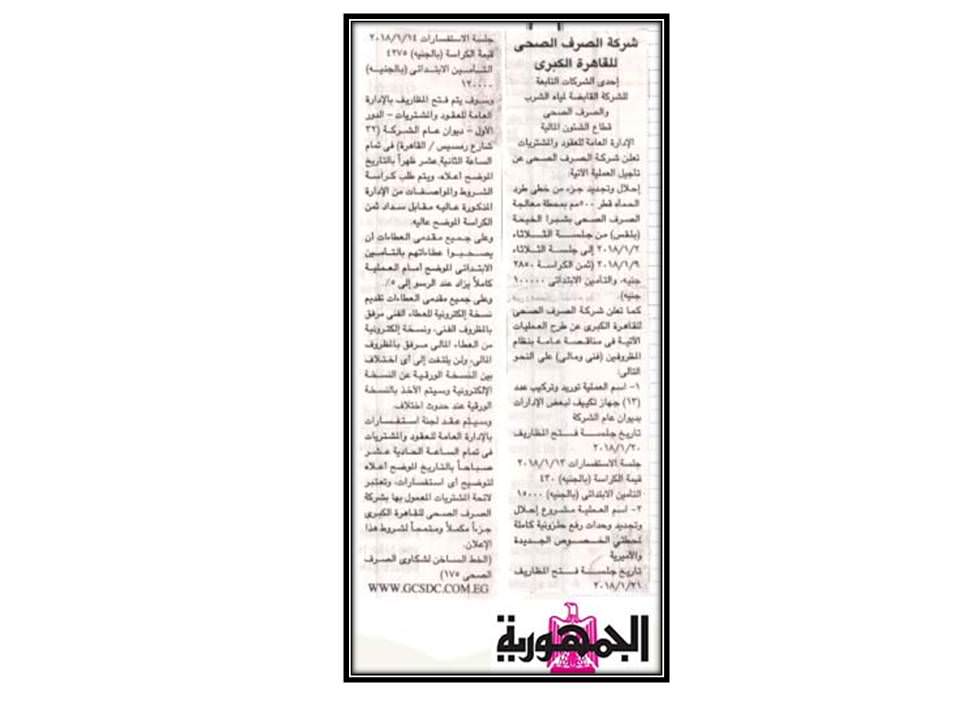 شركة الصرف الصحى
للقاهرة الكبرى
إحدى الشركات التابعة
للشركة القابضة لمياه الشرب
والصرف الصحى
قطاع الشئون المالية
الإدارة العامة للعقود والمشتريات
تعلن شركة الصرف الصحى عن
تأجيل العملية الآتية:
إحلال وتجديد جزء من خطى طرد
الحمأه قطر ٥٠٠مم بمحطة معالجة
الصرف الصحى بشبرا الخيمة
(بلقس) من جلسة الثلاثاء
٢٠١٨/١/٢ إلى جلسة الثلاثاء
٢٠١٨/١/٩ (ثمن الكراسة ٢٨٥٠
جنيه، والتأمين الابتدائى ١٠٠٠٠٠
جنيه).
كما تعلن شركة الصرف الصحى
للقاهرة الكبرى عن طرح العمليات
الآتية فى مناقصة عامة بنظام
المظروفين (فنى ومالى) على النحو
التالى:
١- اسم العملية توريد وتركيب عدد
(١٣) جهاز تكييف لبعض الإدارات
بديوان عام الشركة
تاريخ جلسة فتح المظاريف
٢٠١٨/١/٢٠
جلسة الاستفسارات ٢٠١٨/١/١٣
قيمة الكراسة (بالجنيه) ٤٣٠
التأمين الابتدائى (بالجنيه) ١٥٠٠٠
٢- اسم العملية مشروع إحلال
وتجديد وحدات رفع حلزونية كاملة
لمحطتي الخصوص الجديدة
والأميرية
تاريخ جلسة فتح المظاريف
٢٠١٨/١/٢١
جلسة الاستفسارات ٢٠١٨/١/١٤
قيمة الكراسة (بالجنيه) ٤٢٧٥
التأمين الابتدائى (بالجنيه)
١٢٠٠٠٠
وسوف يتم فتح المظاريف بالإدارة
العامة للعقود والمشتريات - الدور
الأول - ديوان عام الشركة (٣٢
شارع رمسيس / القاهرة) فى تمام
الساعة الثانية عشر ظهراً بالتاريخ
الموضح أعلاه، ويتم طلب كراسة
الشروط والمواصفات من الإدارة
المذكورة عاليه مقابل سداد ثمن
الكراسة الموضح عاليه.
وعلى جميع مقدمى العطاءات أن
يصحبوا عطاءاتهم بالتأمين
الابتدائى الموضح أمام العملية
كاملاً يزاد عند الرسو إلى ٥٪.
وعلى جميع مقدمى العطاءات تقديم
نسخة إلكترونية للعطاء الفنى مرفق
بالمظروف الفنى، ونسخة إلكترونية
من العطاء المالى مرفق بالمظروف
المالى، ولن يلتفت إلى أى اختلاف
بين النسخة الورقية عن النسخة
الإلكترونية وسيتم الأخذ بالنسخة
الورقية عند حدوث اختلاف.
وسيتم عقد لجنة استفسارات
بالإدارة العامة للعقود والمشتريات
فى تمام الساعة الحادية عشر
صباحاً بالتاريخ الموضح أعلاه
لتوضيح أى استفسارات، وتعتبر
لائحة المشتريات المعمول بها بشركة
الصرف الصحى للقاهرة الكبرى
جزءاً مكملاً ومتمماً لشروط هذا
الإعلان.
(الخط الساخن لشكاوى الصرف
الصحى ١٧٥)
WWW.GCSDC.COM.EG
الجمهورية